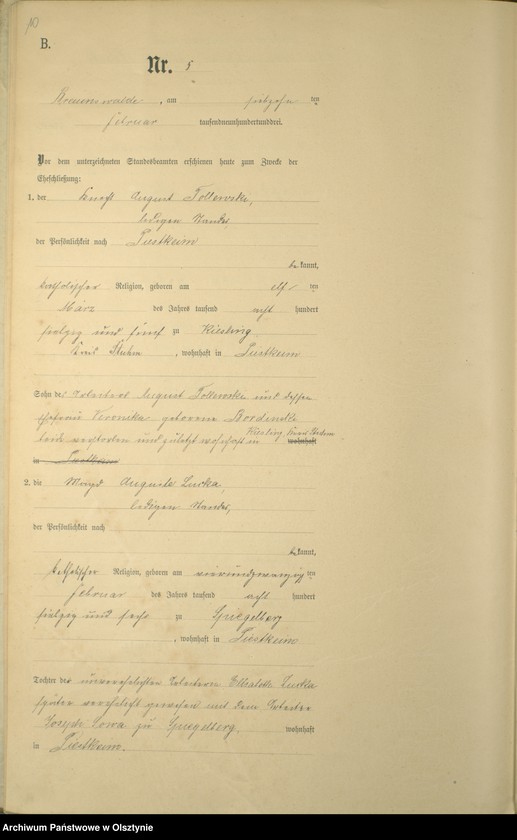 10
B.
Nr. 5
am siebzehn ten
Februar tausendneunhundertunddrei.
Vor dem unterzeichneten Standesbeamten erschienen heute zum Zwecke der
Eheschließung:
1. der Knecht August
ledigen Standes,
der Persönlichkeit nach
be kannt,
katholischer Religion, geboren am elf ten
März des Jahres tausend acht hundert
siebzig und fünf zu Kiesling
Kreis Stuhm, wohnhaft in
Sohn des Arbeiters August und dessen
Ehefrau Veronika geborene
beide verstorben und zuletzt wohnhaft in Kiesling, Kreis Stuhm wohnhaft
in
2. die Magd Auguste
ledigen Standes,
der Persönlichkeit nach
be kannt,
katholischer Religion, geboren am vierundzwanzig ten
Februar des Jahres tausend acht hundert
siebzig und sechs zu Spiegelberg
, wohnhaft in
Tochter der unverehelichten Arbeiterin Elisabeth
später verehelicht gewesen mit dem Arbeiter
Joseph Sowa zu Spiegelberg. wohnhaft
in
Archiwum Państwowe w Olsztynie